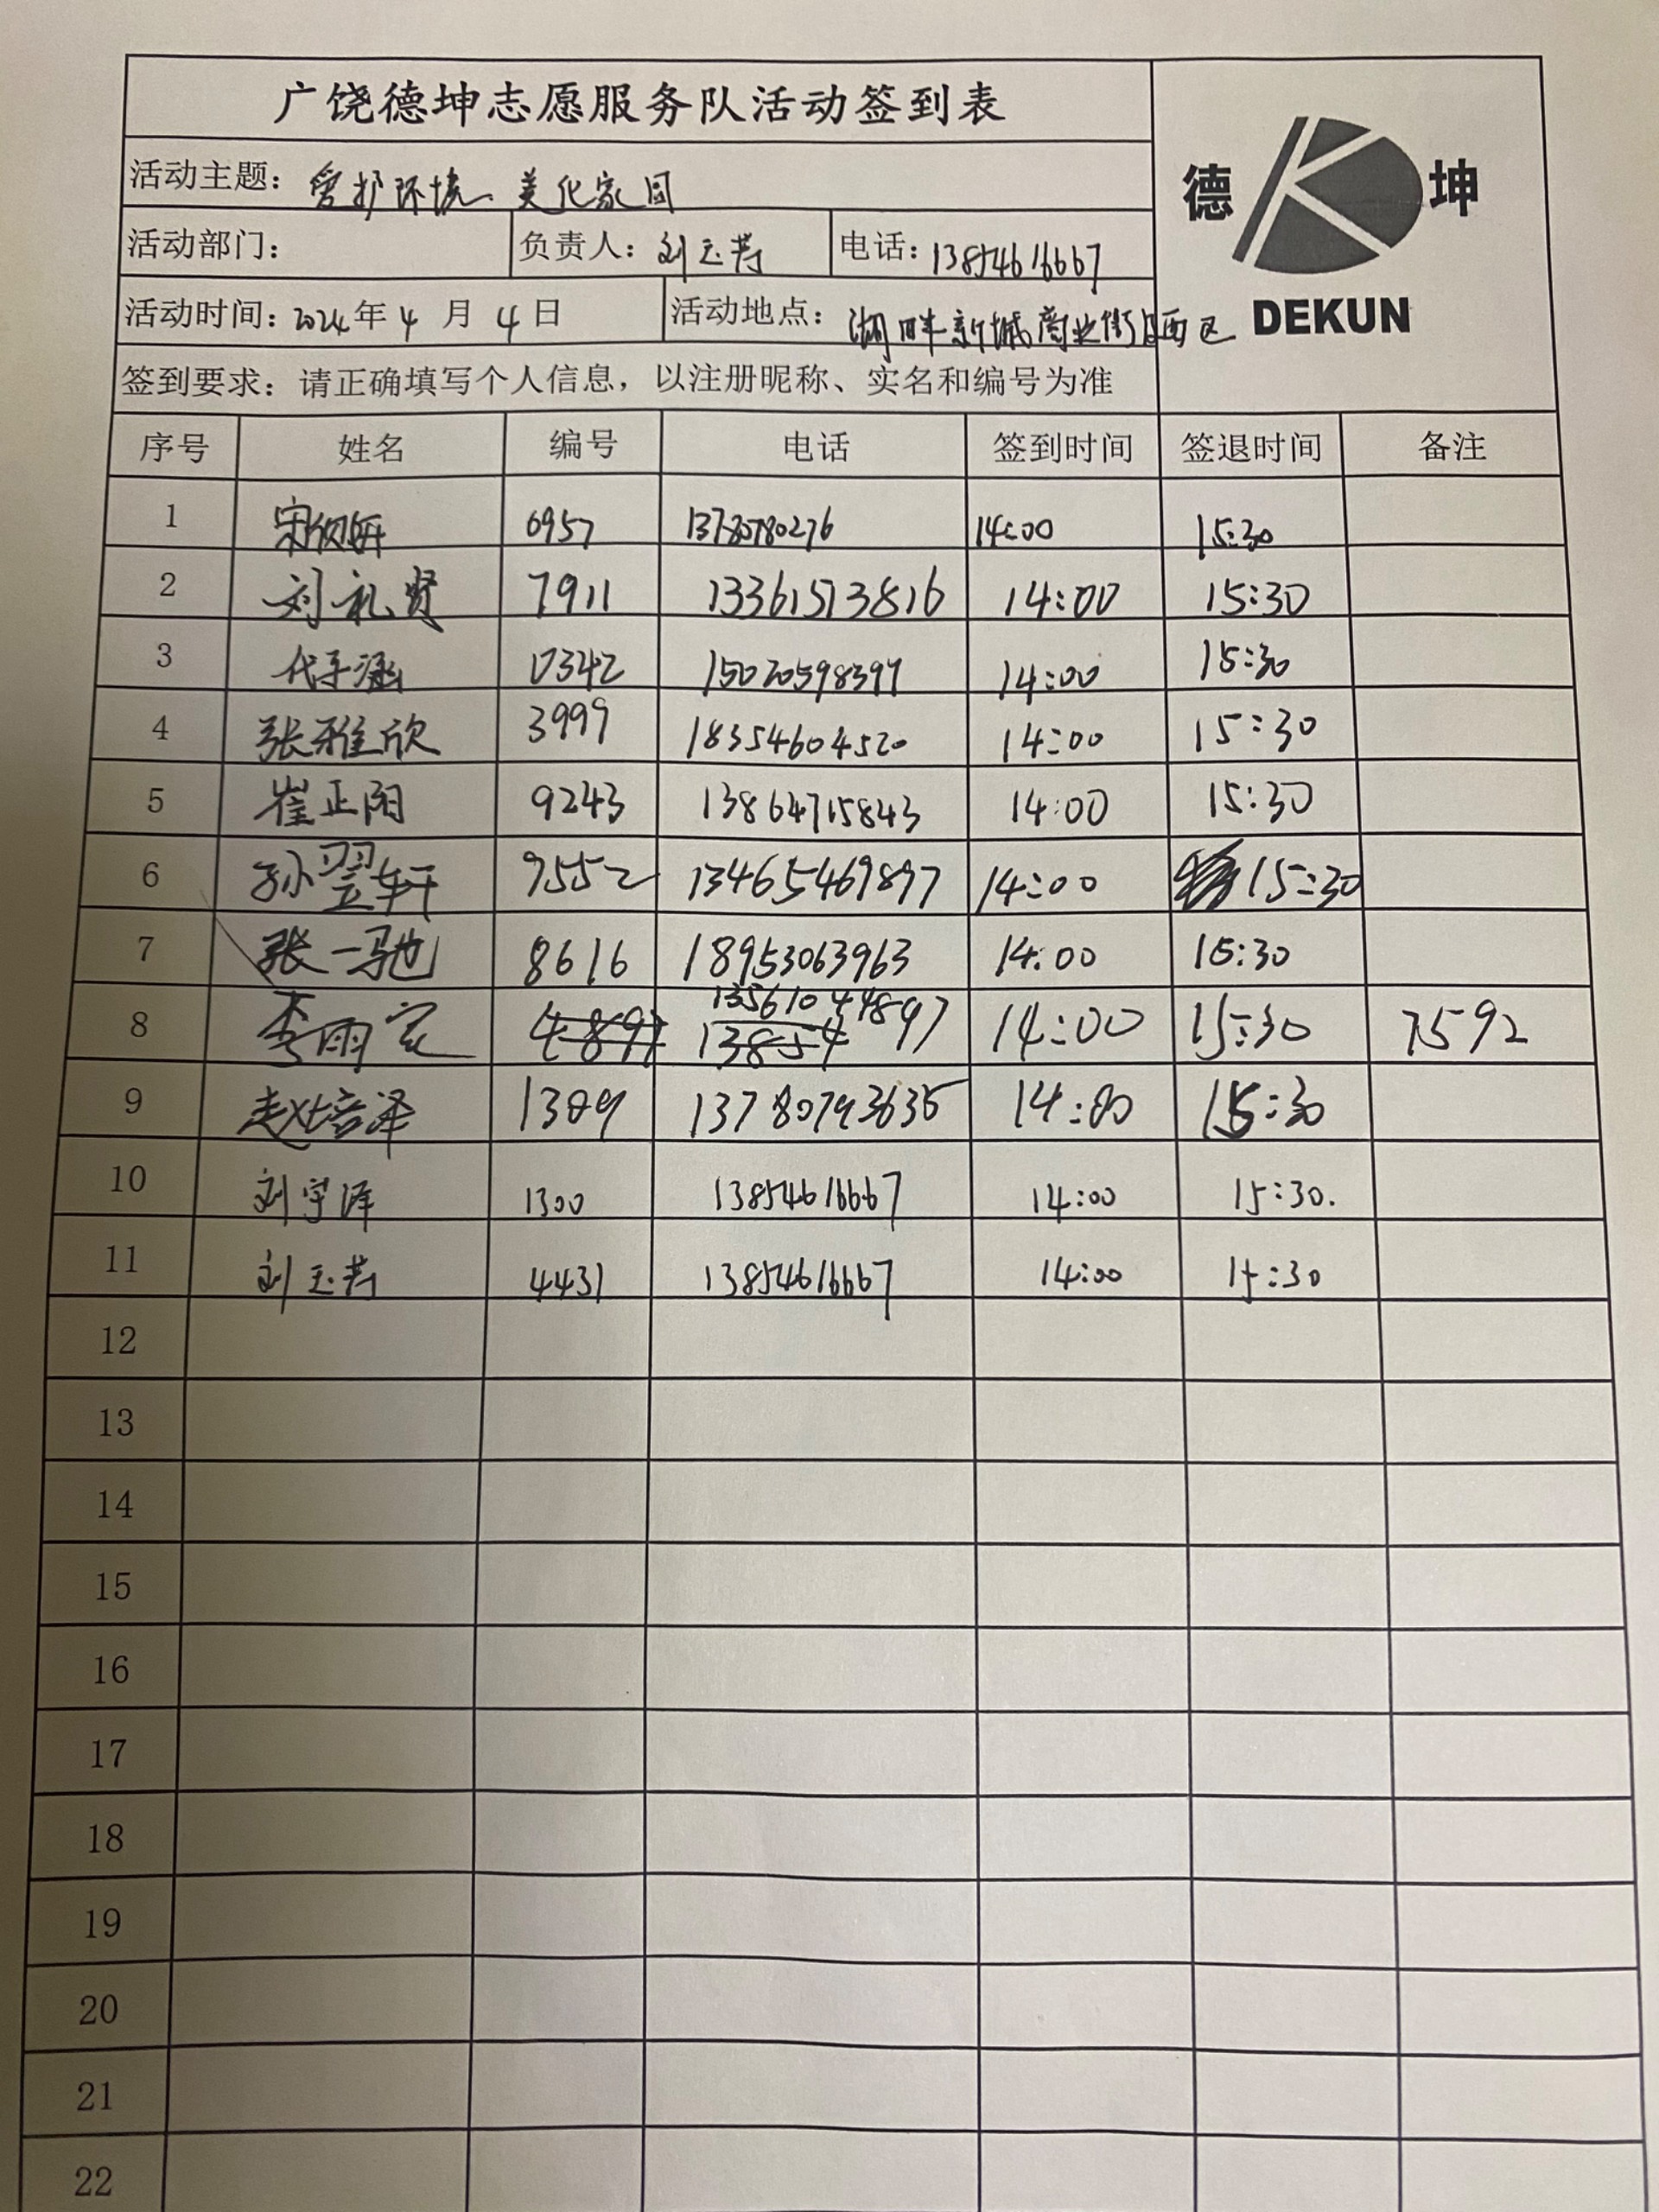 广饶德坤志愿服务队活动签到表
德 坤
DEKUN
活动主题：爱护环境、美化家园
活动部门： 负责人：刘玉芳 电话：13854616667
活动时间：2024年4月4日 活动地点：湖畔新城商业街西区
签到要求：请正确填写个人信息，以注册昵称、实名和编号为准
序号 姓名 编号 电话 签到时间 签退时间 备注
1 宋 妍 6957 13780780276 14:00 15:30
2 刘礼贤 7911 13361513816 14:00 15:30
3 代子涵 0342 15020598397 14:00 15:30
4 张雅欣 3999 18354604520 14:00 15:30
5 崔正阳 9243 13864715843 14:00 15:30
6 孙翌轩 9552 13465469897 14:00 15:30
7 张一驰 8616 18953063963 14:00 15:30
8 李雨 4897 13561044897 14:00 15:30 7592
9 赵培泽 1309 13780793635 14:00 15:30
10 刘宇泽 1300 13854616667 14:00 15:30.
11 刘玉芳 4431 13854616667 14:00 15:30
12
13
14
15
16
17
18
19
20
21
22